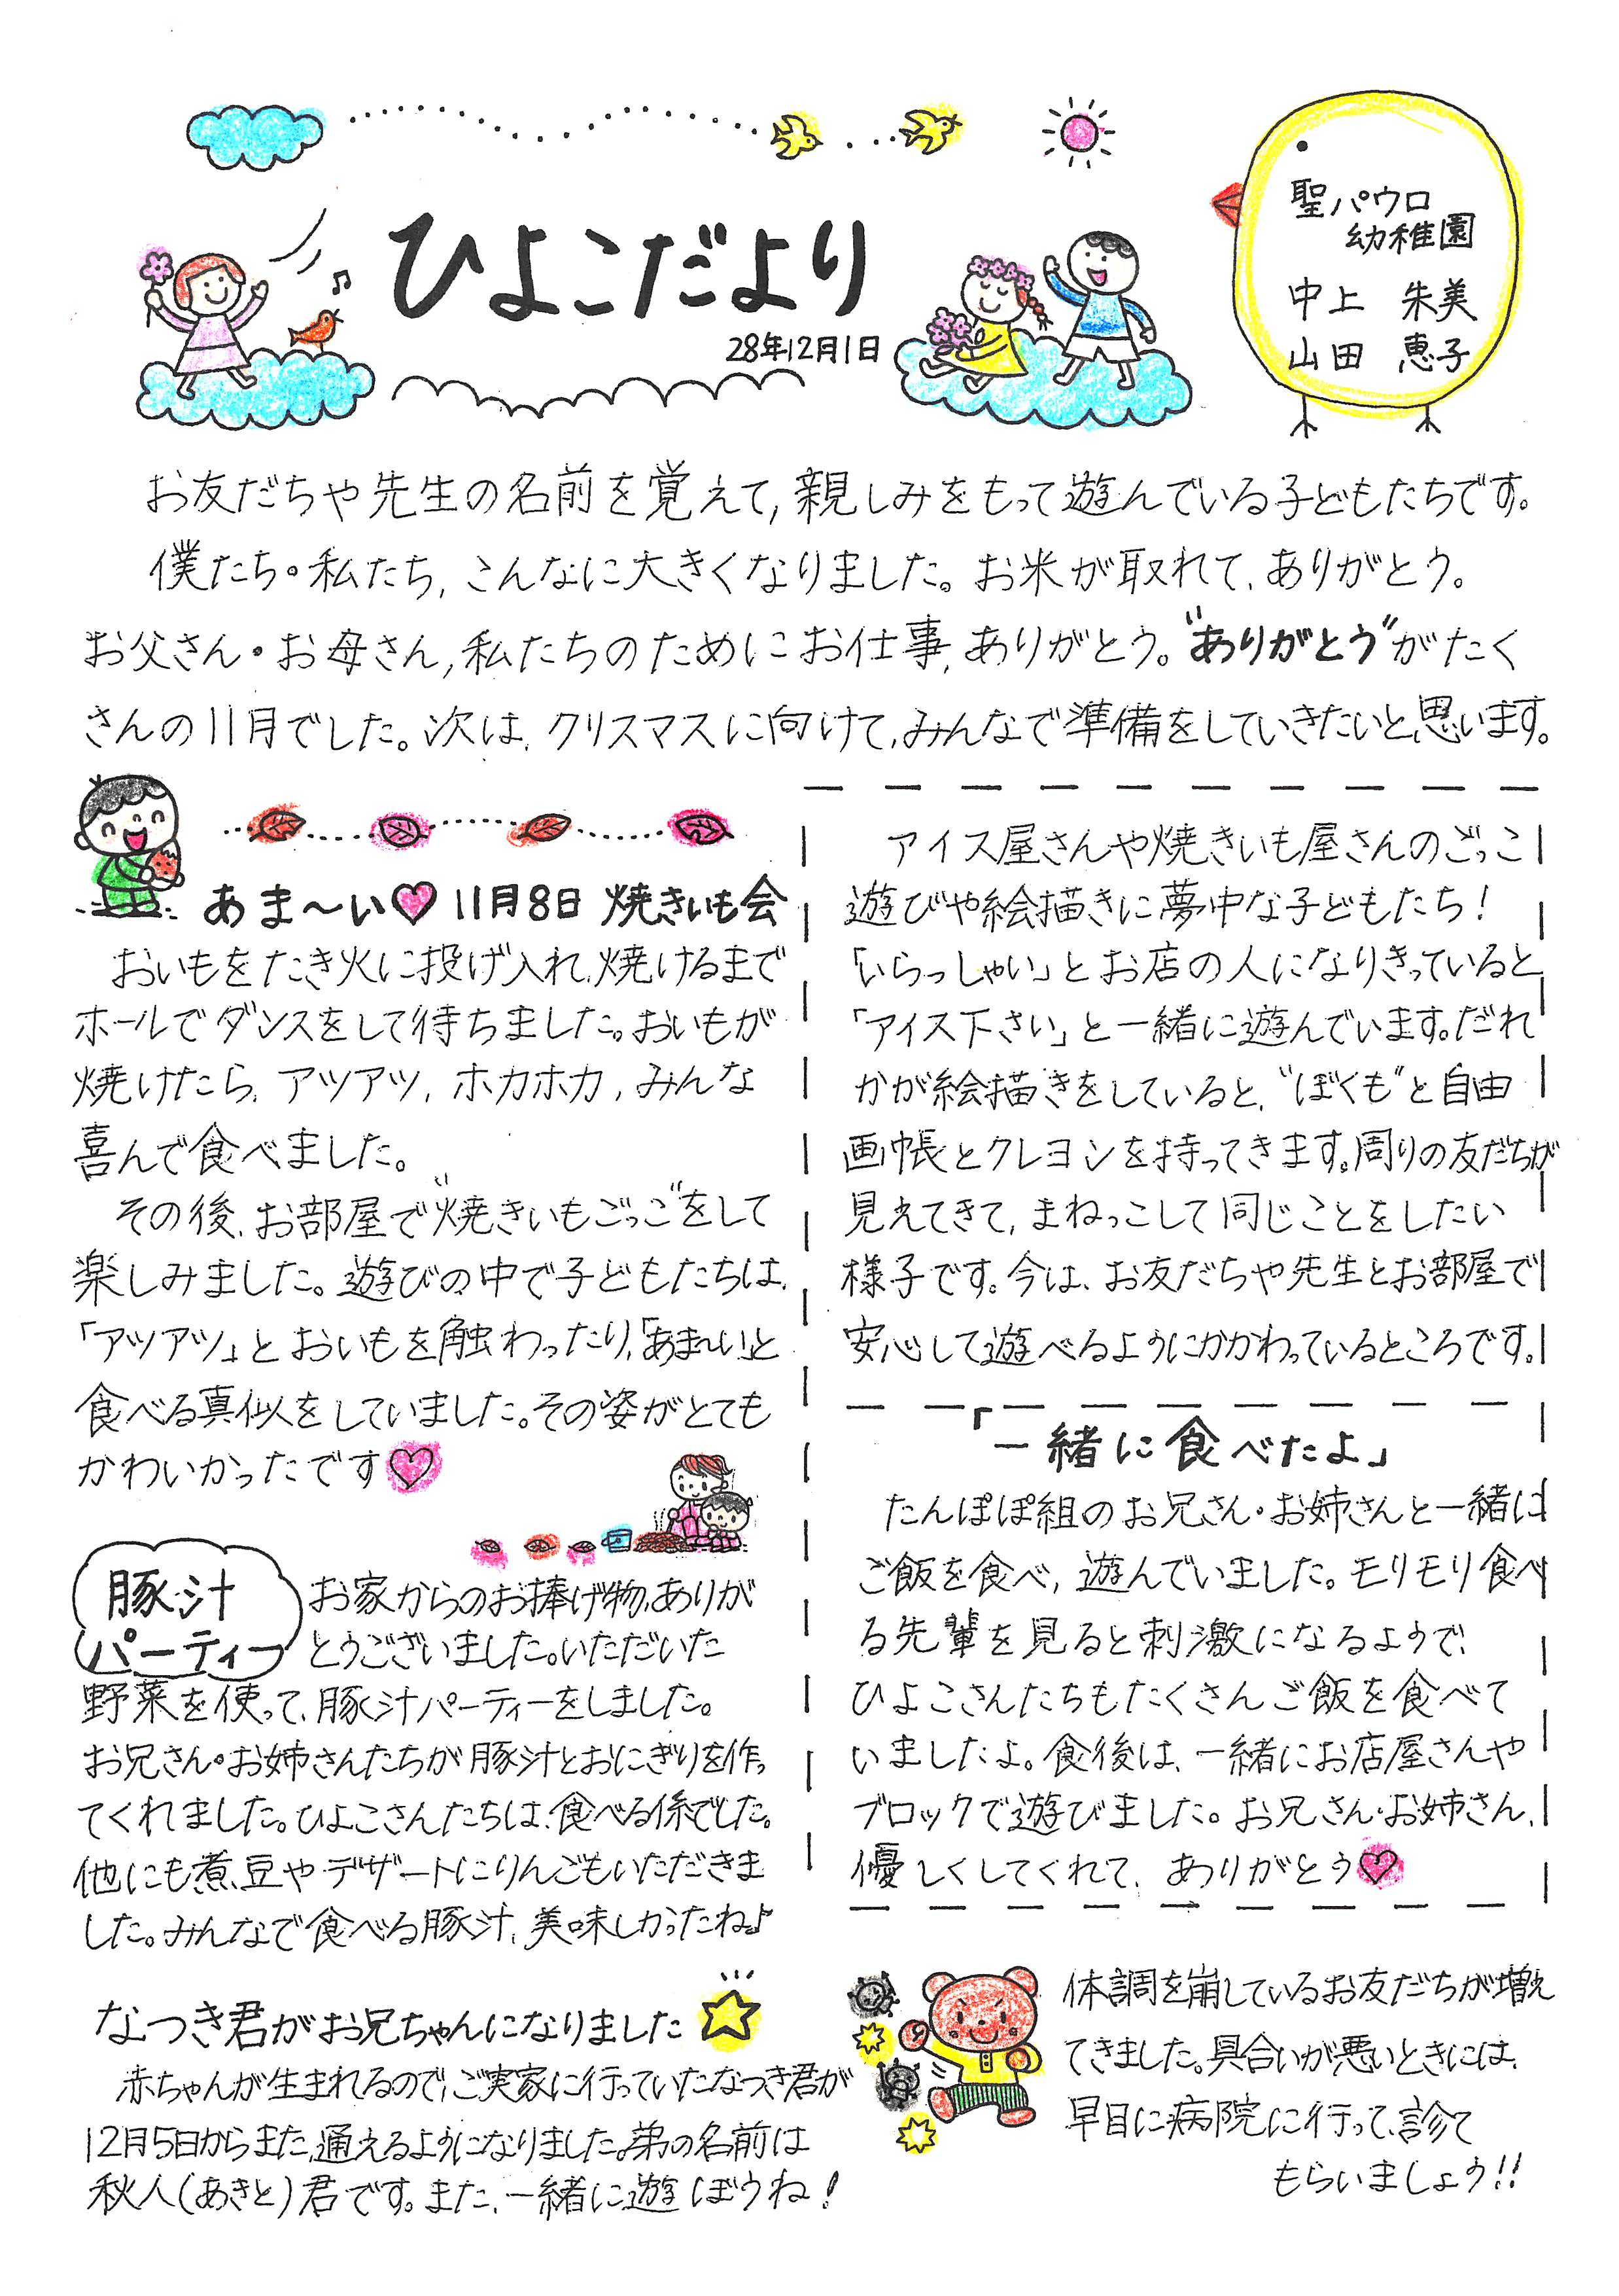 ひよこだより
28年12月1日
聖パウロ
幼稚園
中上 朱美
山田 恵子
お友だちや先生の名前を覚えて,親しみをもって遊んでいる子どもたちです。
僕たち・私たち,こんなに大きくなりました。お米が取れて,ありがとう。
お父さん・お母さん,私たちのためにお仕事,ありがとう。“ありがとう”がたく
さんの11月でした。次は,クリスマスに向けて,みんなで準備をしていきたいと思います。
あま〜い♡11月8日 焼きいも会
おいもをたき火に投げ入れ,焼けるまで
ホールでダンスをして待ちました。おいもが
焼けたら,アツアツ,ホカホカ,みんな
喜んで食べました。
その後,お部屋で“焼きいもごっご”をして
楽しみました。遊びの中で子どもたちは,
「アツアツ」とおいもを触わったり,「あま〜い」と
食べる真似をしていました。その姿がとても
かわいかったです♡
豚汁
パーティー
お家からのお捧げ物,ありが
とうございました。いただいた
野菜を使って,豚汁パーティーをしました。
お兄さん・お姉さんたちが豚汁とおにぎりを作っ
てくれました。ひよこさんたちは,食べる係でした。
他にも煮豆やデザートにりんごもいただきま
した。みんなで食べる豚汁,美味しかったね♪
なつき君がお兄ちゃんになりました☆
赤ちゃんが生まれるので,ご実家に行っていたなつき君が
12月5日からまた,通えるようになりました。弟の名前は
秋人(あきと)君です。また,一緒に遊ぼうね!
アイス屋さんや焼きいも屋さんのごっこ
遊びや絵描きに夢中な子どもたち!
「いらっしゃい」とお店の人になりきっていると
「アイス下さい」と一緒に遊んでいます。だれ
かが絵描きをしていると,“ぼくも”と自由
画帳とクレヨンを持ってきます。周りの友だちが
見えてきて,まねっこして同じことをしたい
様子です。今は,お友だちや先生とお部屋で
安心して遊べるようにかかわっているところです。
「一緒に食べたよ」
たんぽぽ組のお兄さん・お姉さんと一緒に
ご飯を食べ,遊んでいました。モリモリ食べ
る先輩を見ると刺激になるようで,
ひよこさんたちもたくさんご飯を食べて
いましたよ。食後は,一緒にお店屋さんや
ブロックで遊びました。お兄さん・お姉さん,
優しくしてくれて,ありがとう♡
体調を崩しているお友だちが増え
てきました。具合いが悪いときには,
早目に病院に行って,診て
もらいましょう!!